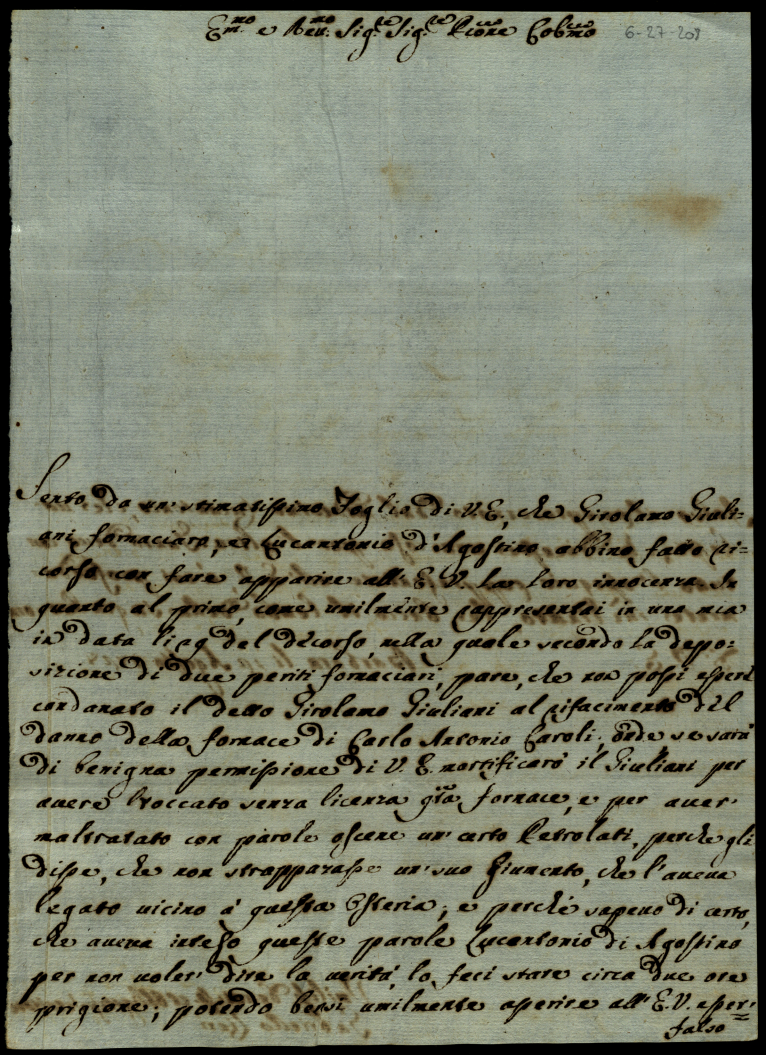 E.mo e Rev.mo Sig.re Sig.re P.rone Col.mo 6-27-209
Sento da un' stimatissimo Foglio di V. E., che Girolamo Giuli=
ani fornaciaro, e Lucantonio d'Agostino abbino fatto ri=
corso con fare apparire all' E. V. la loro innocenza. In
quanto al primo, come umilmente rappresentai in una mia
in data li 29 del decorso, nella quale secondo la depo=
sizione di due periti fornaciari, pare, che non possi esser
condanato il detto Girolamo Giuliani al rifacimento del
danno della fornace di Carlo Antonio Caroli; onde se sarà
di benigna permissione di V. E. mortificarò il Giuliani per
avere broccato senza licenza q.ta fornace, e per aver'
maltratato con parole oscene un' certo Petrolati, perche gli
disse, che non strapparasse un' suo Giumento, che l'aveva
legato vicino à questa Osteria; e perché sapevo di certo,
che aveva inteso queste parole Lucantonio di Agostino
per non voler' dire la verità, lo feci stare circa due ore
prigione; potendo bensi umilmente asserire all' E. V. esser=
falso